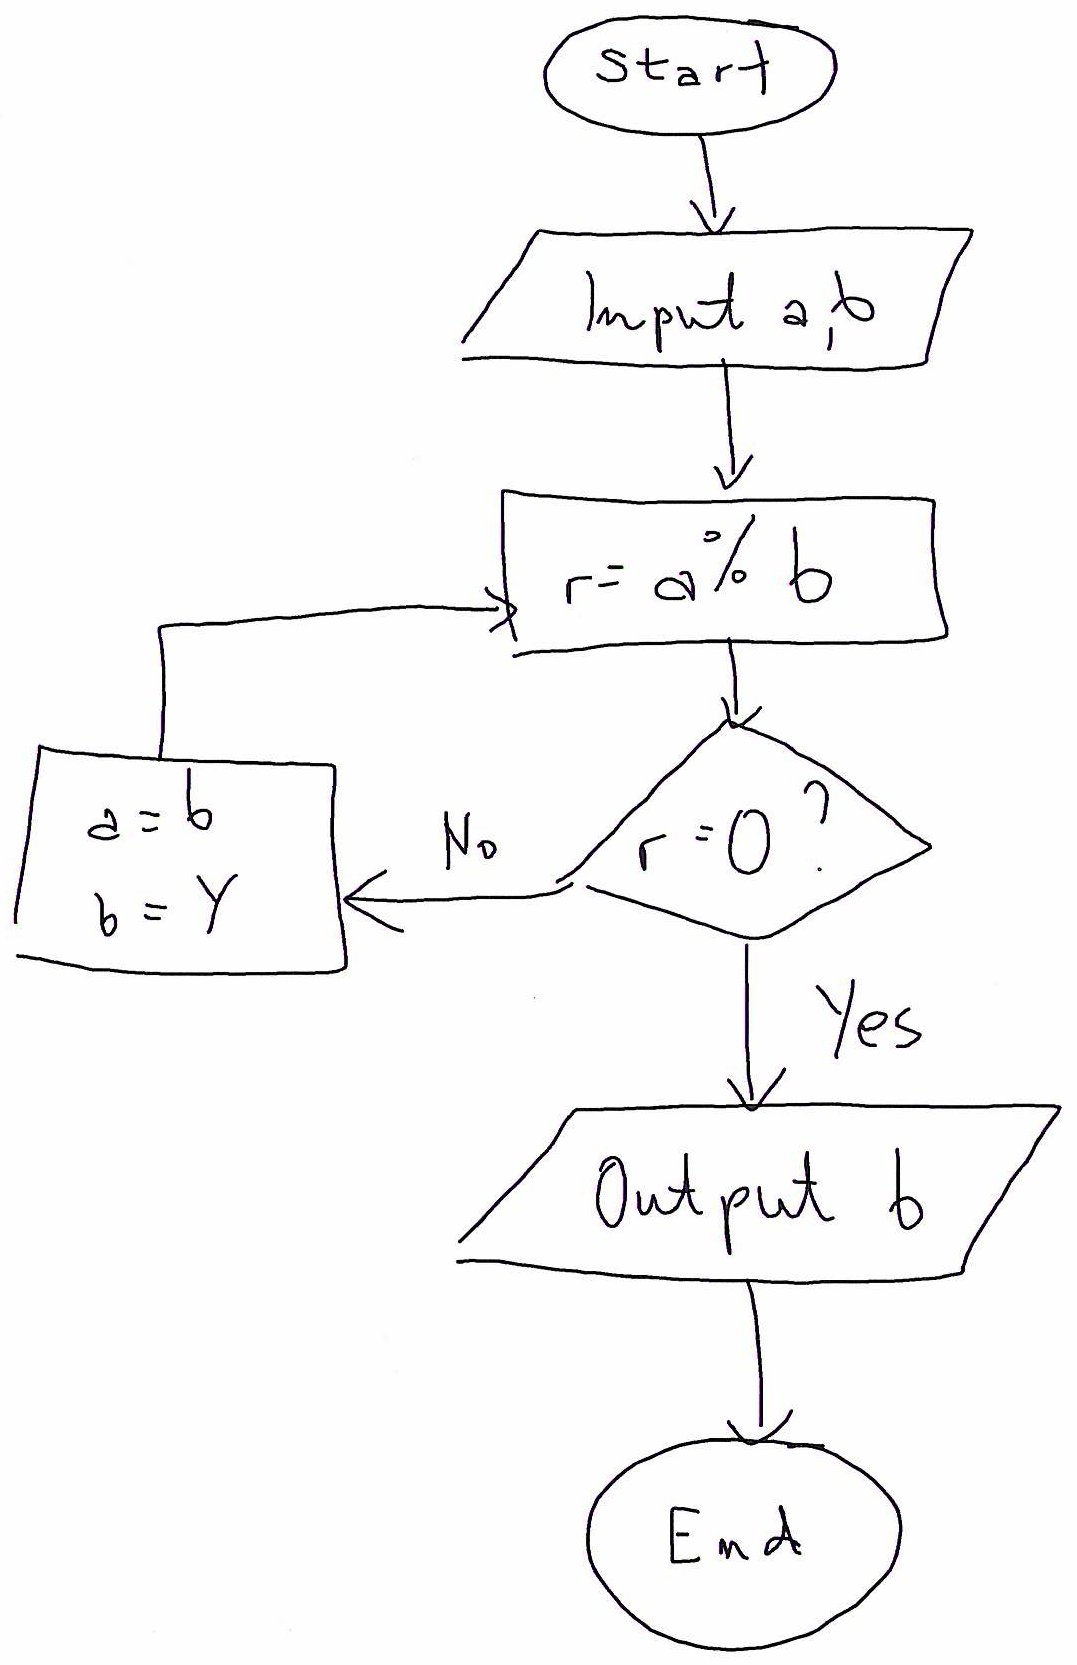 Start
Input a,b
r = a % b
r = 0 ?
No
a = b
b = Y
Yes
Output b
End